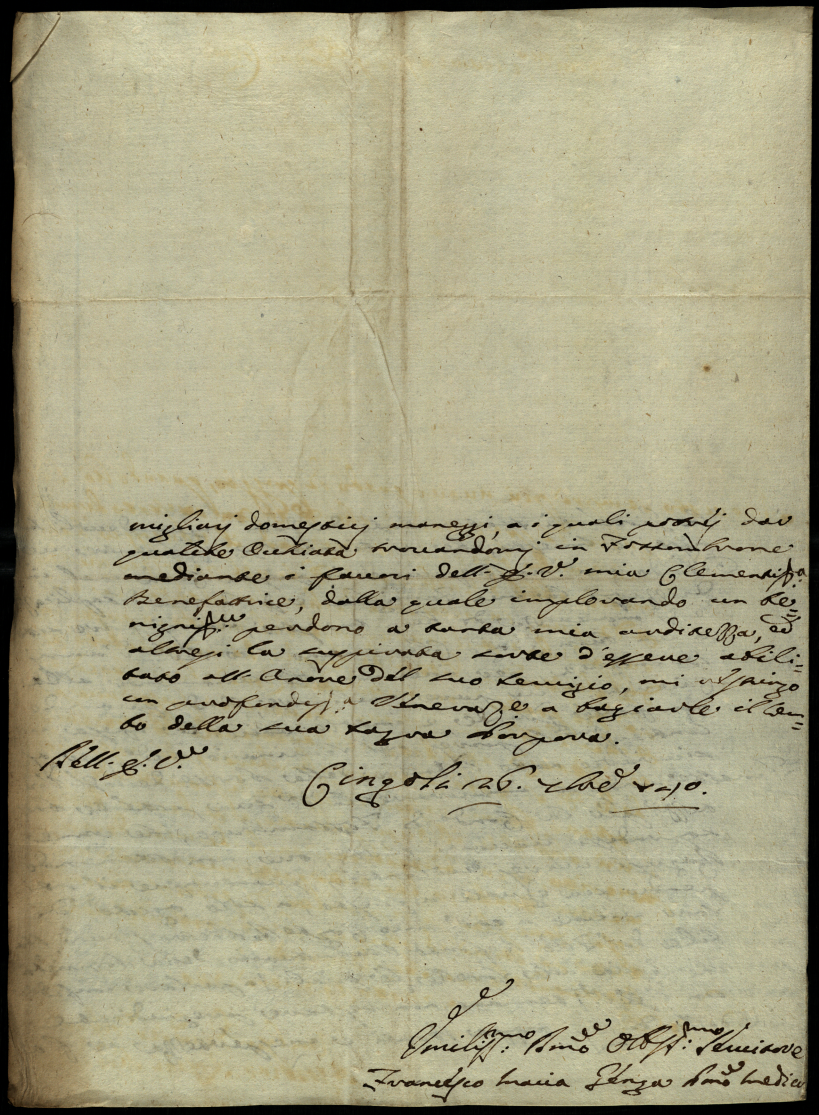 migliarj domesticj maneggj, a i quali potrej dar
qualche Occhiata trovandomj in Fossombrone
mediante i favori dell' E. V. mia Clementiss.a
Benefattrice, dalla quale implorando un be=
nigniss.mo perdono a tanta mia arditezza, ed
altresj la sospirata sorte d'essere abili=
tato all' Onore del suo servigio, mi
un profondiss.a a bagiarle il lem=
bo della sua sagra Porpora.
Dell' E. V.
Cingoli 26. 7bre 1740.
Umiliss.mo Dmo ed Obblig.mo Servitore
Francesco Maria Genga Medico